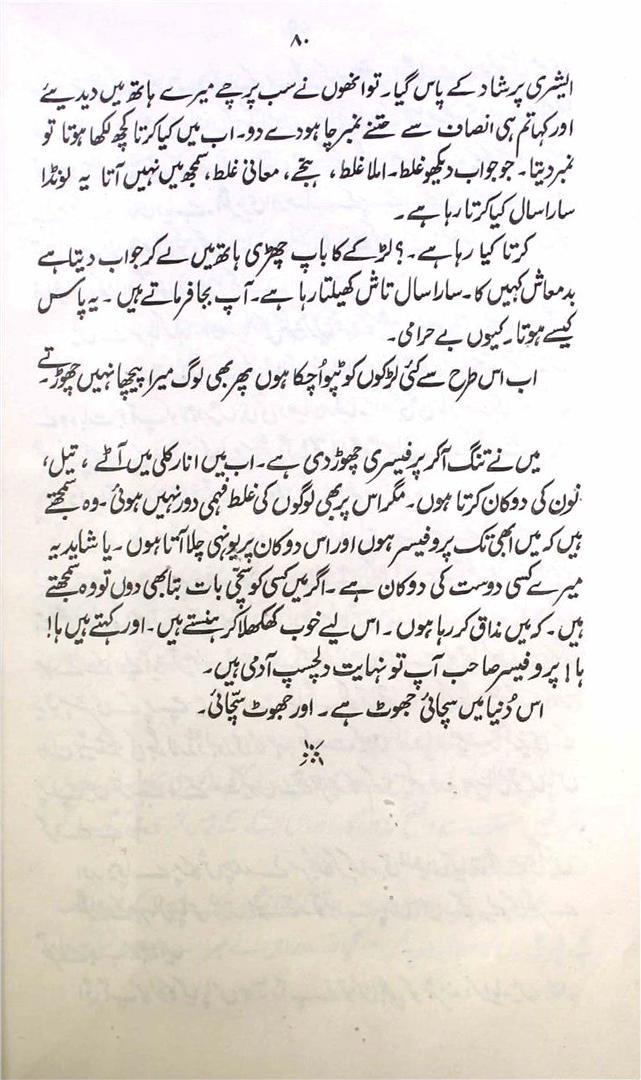 ۸۰
ایشری پرشاد کے پاس گیا۔ تو انھوں نے سب پرچے میرے ہاتھ میں دیدیئے
اور کہا تم ہی انصاف سے جتنے نمبر چاہو دے دو۔ اب میں کیا کرتا کچھ لکھا ہوتا تو
نمبر دیتا۔ جو جواب دیکھو غلط۔ املا غلط، ہجے، معانی غلط، سمجھ میں نہیں آتا یہ لونڈا
سارا سال کیا کرتا رہا ہے۔
کرتا کیا رہا ہے۔؟ لڑکے کا باپ چھڑی ہاتھ میں لے کر جواب دیتا ہے
بدمعاش کہیں کا۔ سارا سال تاش کھیلتا رہا ہے۔ آپ بجا فرماتے ہیں۔ یہ پاس
کیسے ہوتا۔ کیوں بے حرامی۔
اب اس طرح سے کئی لڑکوں کو ٹپوا چکا ہوں پھر بھی لوگ میرا پیچھا نہیں چھوڑتے۔
میں نے تنگ آکر پرفیسری چھوڑ دی ہے۔ اب میں انارکلی میں آٹے، تیل،
نون کی دوکان کرتا ہوں۔ مگر اس پر بھی لوگوں کی غلط فہمی دور نہیں ہوئی۔ وہ سمجھتے
ہیں کہ میں ابھی تک پروفیسر ہوں اور اس دوکان پر یونہی چلا آتا ہوں۔ یا شاید یہ
میرے کسی دوست کی دوکان ہے۔ اگر میں کسی کو سچّی بات بتا بھی دوں تو وہ سمجھتے
ہیں۔ کہ میں مذاق کر رہا ہوں۔ اس لیے خوب کھکھلا کر ہنستے ہیں۔ اور کہتے ہیں ہا!
ہا! پروفیسر صاحب آپ تو نہایت دلچسپ آدمی ہیں۔
اس دُنیا میں سچائی جھوٹ ہے۔ اور جھوٹ سچّائی۔